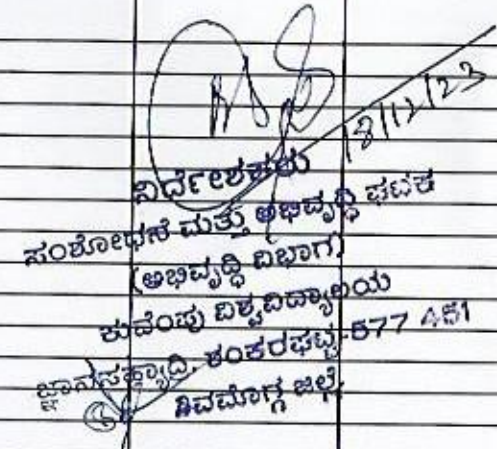 18/12/23
ನಿರ್ದೇಶಕರು
ಸಂಶೋಧನೆ ಮತ್ತು ಅಭಿವೃದ್ಧಿ ಘಟಕ
(ಅಭಿವೃದ್ಧಿ ವಿಭಾಗ)
ಕುವೆಂಪು ವಿಶ್ವವಿದ್ಯಾಲಯ
ಜ್ಞಾನಸಹ್ಯಾದ್ರಿ, ಶಂಕರಘಟ್ಟ-577 451
ಶಿವಮೊಗ್ಗ ಜಿಲ್ಲೆ